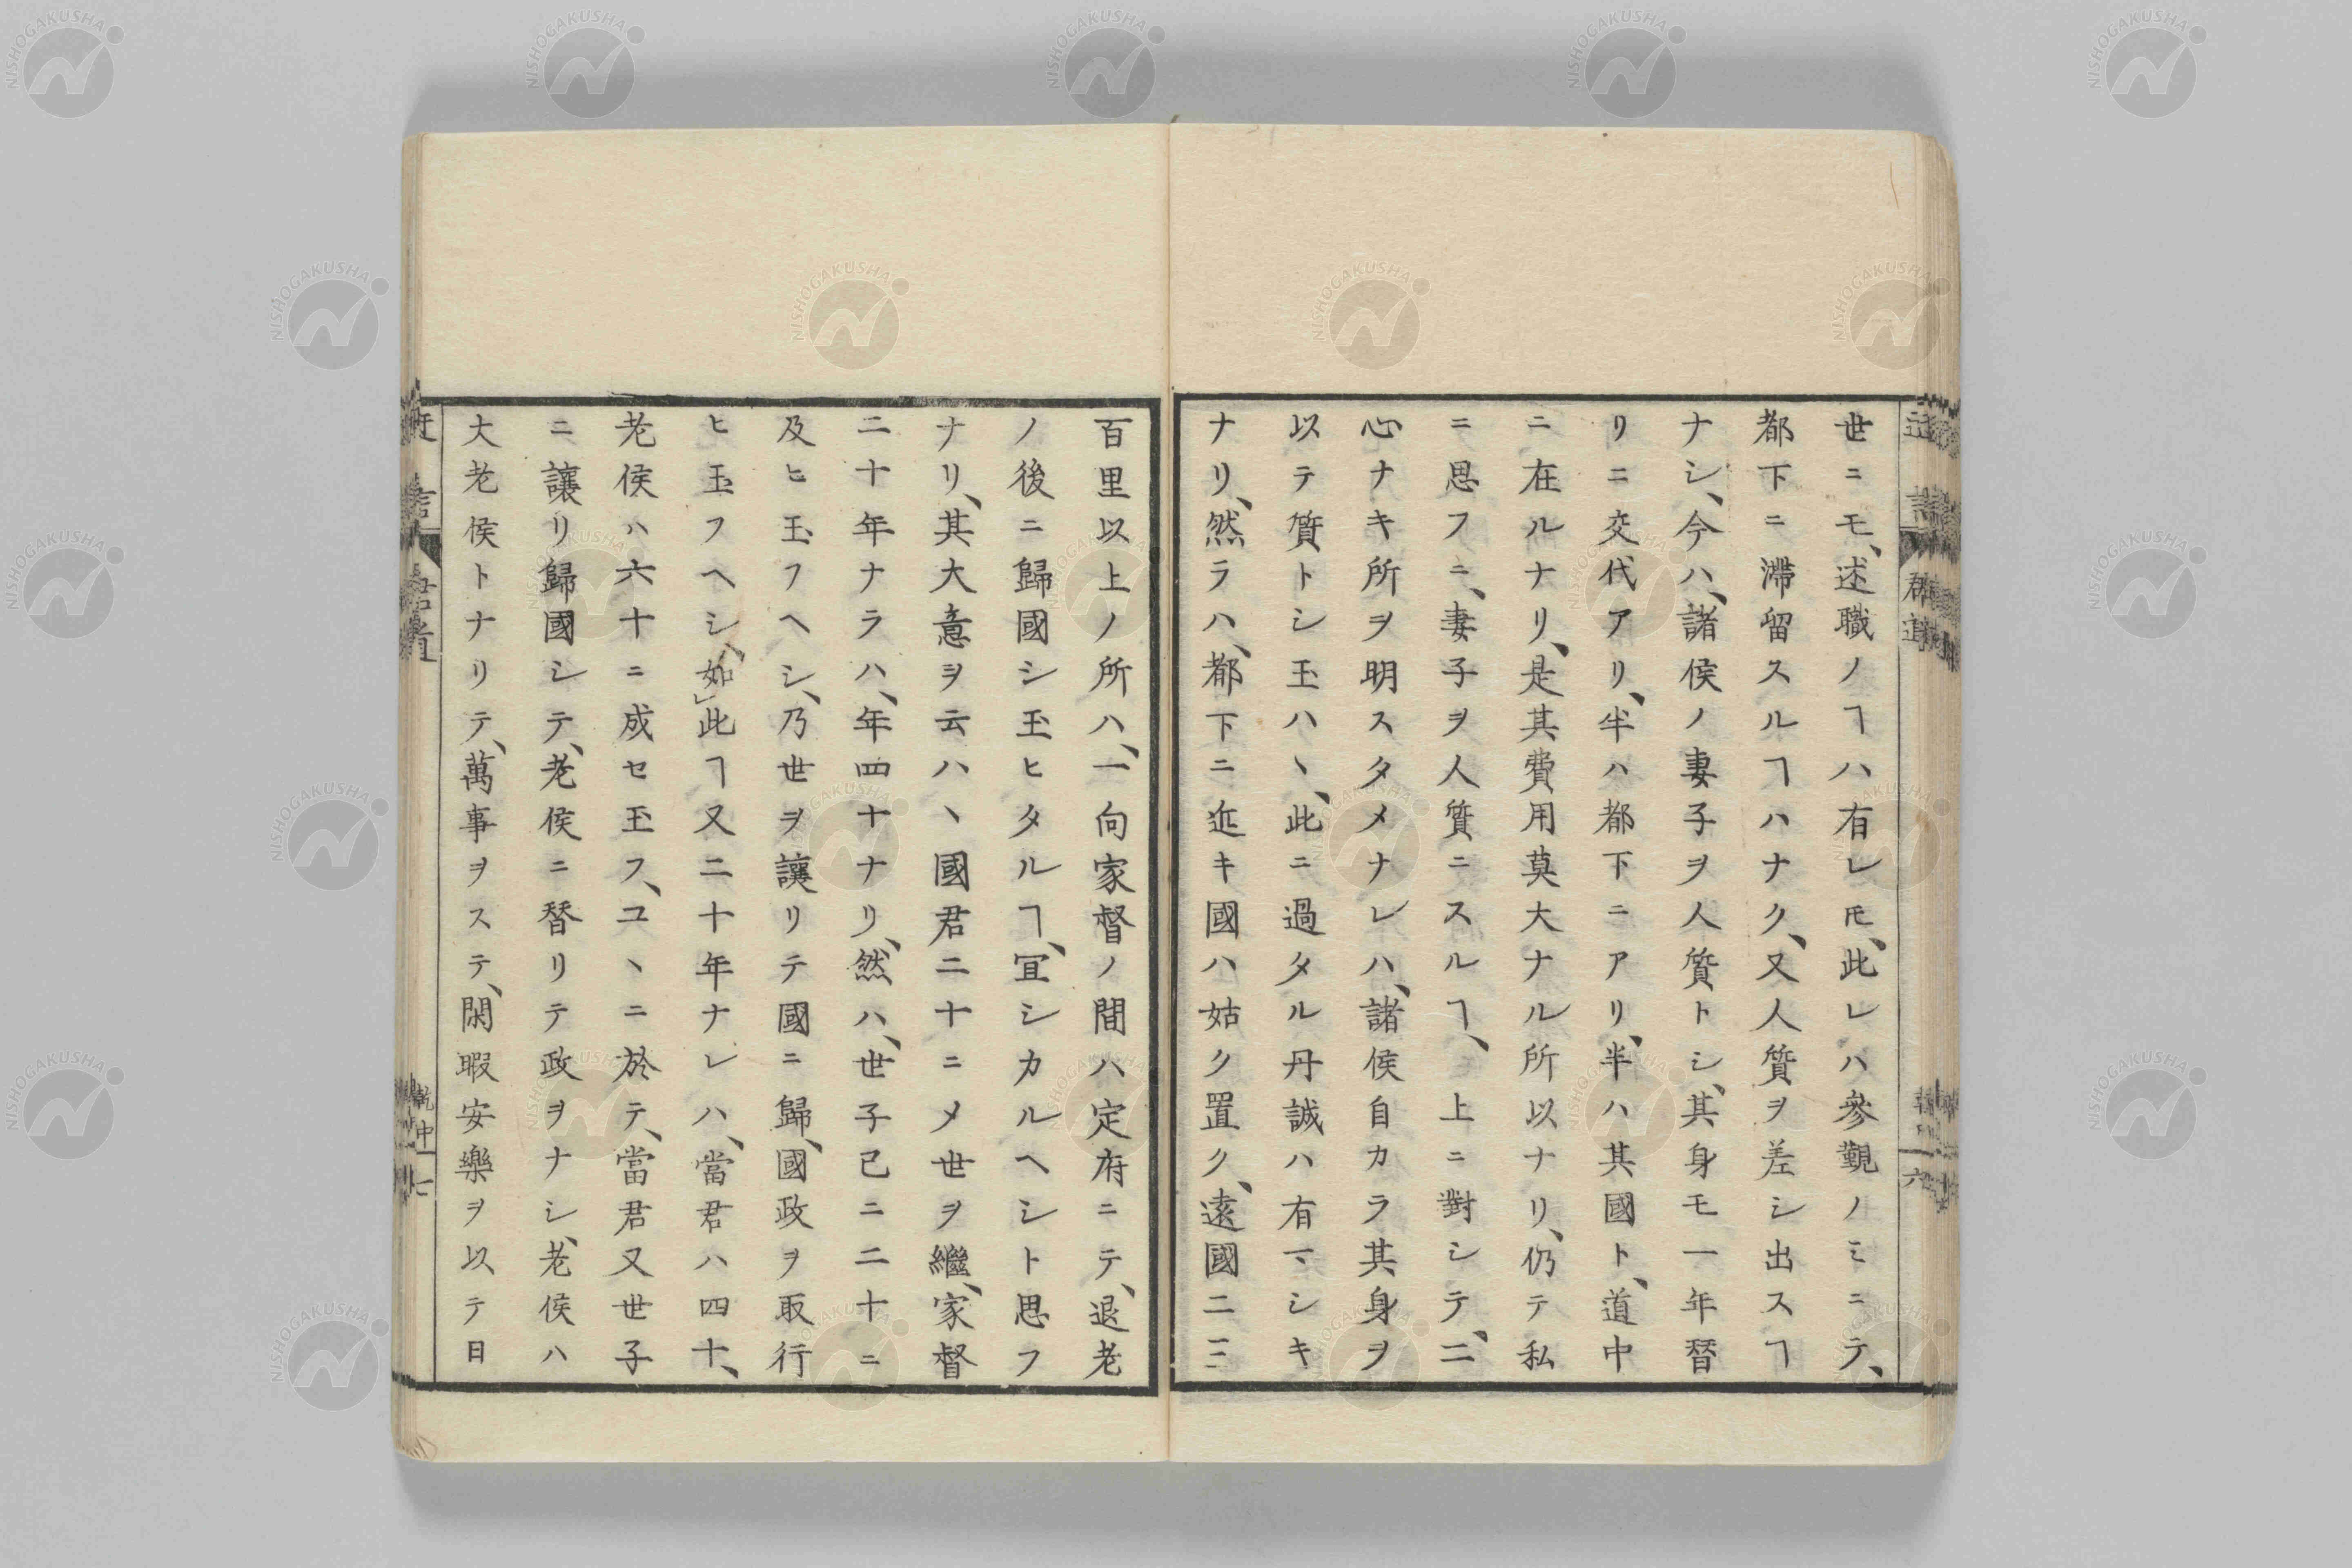 世ニモ、述職ノヿハ有レ𪜈、此レハ參覲ノミニテ、
都下ニ滯留スルヿハナク、又人質ヲ差シ出スヿ
ナシ、今ハ、諸侯ノ妻子ヲ人質トシ、其身モ一年替
リニ交代アリ、半ハ都下ニアリ、半ハ其國ト、道中
ニ在ルナリ、是其費用莫大ナル所以ナリ、仍テ私
ニ思フニ、妻子ヲ人質ニスルヿ、上ニ對シテ、二
心ナキ所ヲ明スタメナレハ、諸侯自カラ其身ヲ
以テ質トシ玉ハヽ、此ニ過タル丹誠ハ有マシキ
ナリ、然ラハ、都下ニ近キ國ハ姑ク置ク、遠國二三
百里以上ノ所ハ、一向家督ノ間ハ定府ニテ、退老
ノ後ニ歸國シ玉ヒタルヿ、宜シカルヘシト思フ
ナリ、其大意ヲ云ハヽ國君二十ニメ世ヲ繼、家督
二十年ナラハ、年四十ナリ、然ハ、世子已ニ二十ニ
及ヒ玉フヘシ、乃世ヲ讓リテ國ニ歸、國政ヲ取行
ヒ玉フヘシ、如此ヿ又二十年ナレハ、當君ハ四十、
老侯ハ六十ニ成セ玉フ、コヽニ於テ、當君又世子
ニ讓リ歸國シテ、老侯ニ替リテ政ヲナシ、老侯ハ
大老侯トナリテ、萬事ヲステ、閑暇安樂ヲ以テ日
乾中
七
NISHOGAKUSHA